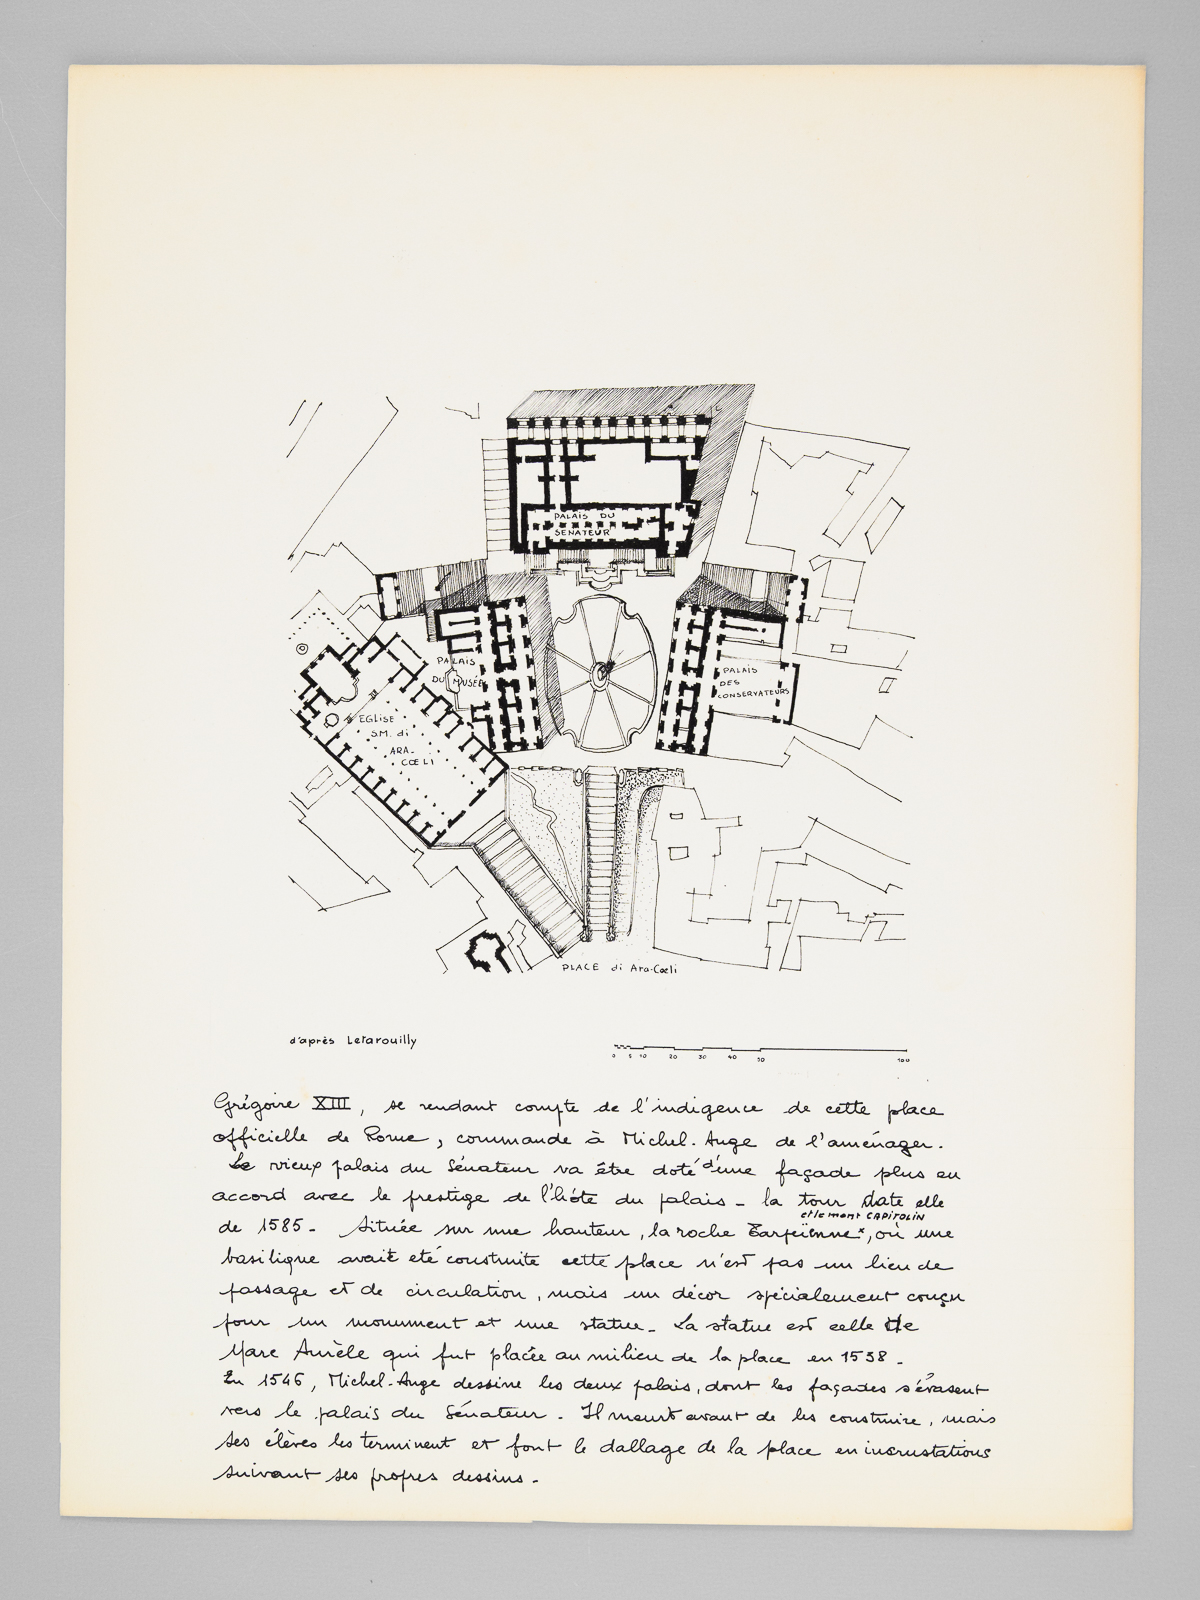 PALAIS DU
SÉNATEUR
PALAIS
DU MUSÉE
PALAIS
DES
CONSERVATEURS
EGLISE
S.M. di
ARA-
CŒLI
PLACE di Ara-Cœli
d'après Letarouilly
0 5 10 20 30 40 50 100
Grégoire XIII, se rendant compte de l'indigence de cette place
officielle de Rome, commande à Michel-Ange de l'aménager.
Le vieux palais du Sénateur va être doté d'une façade plus en
accord avec le prestige de l'hôte du palais - la tour date elle
de 1585 - Située sur une hauteur, la roche Tarpéïenne*, où une
et le mont CAPITOLIN
basilique avait été construite cette place n'est pas un lieu de
passage et de circulation, mais un décor spécialement conçu
pour un monument et une statue - La statue est celle de
Marc Aurèle qui fut placée au milieu de la place en 1538 -
En 1546, Michel-Ange dessine les deux palais, dont les façades s'évasent
vers le palais du Sénateur - Il meurt avant de les construire, mais
ses élèves les terminent et font le dallage de la place en incrustations
suivant ses propres dessins -